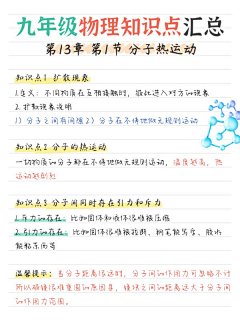 九年级物理知识点汇总
第13章 第1节 分子热运动
知识点1 扩散现象
1.定义：不同物质在互相接触时，彼此进入对方的现象
2.扩散现象说明
1）分子之间有间隙 2）分子在不停地做无规则运动
知识点2 分子的热运动
一切物质的分子都在不停地做无规则运动，温度越高，热
运动越剧烈
知识点3 分子间同时存在引力和斥力
1.斥力的存在：比如固体和液体很难被压缩
2.引力的存在：比如固体很难被拉断、钢笔写字、胶水
能粘东西等
温馨提示：当分子距离很远时，分子间的作用力可忽略不计
所以破镜很难重圆的原因是，镜块之间的距离远大于分子间
的作用力范围。